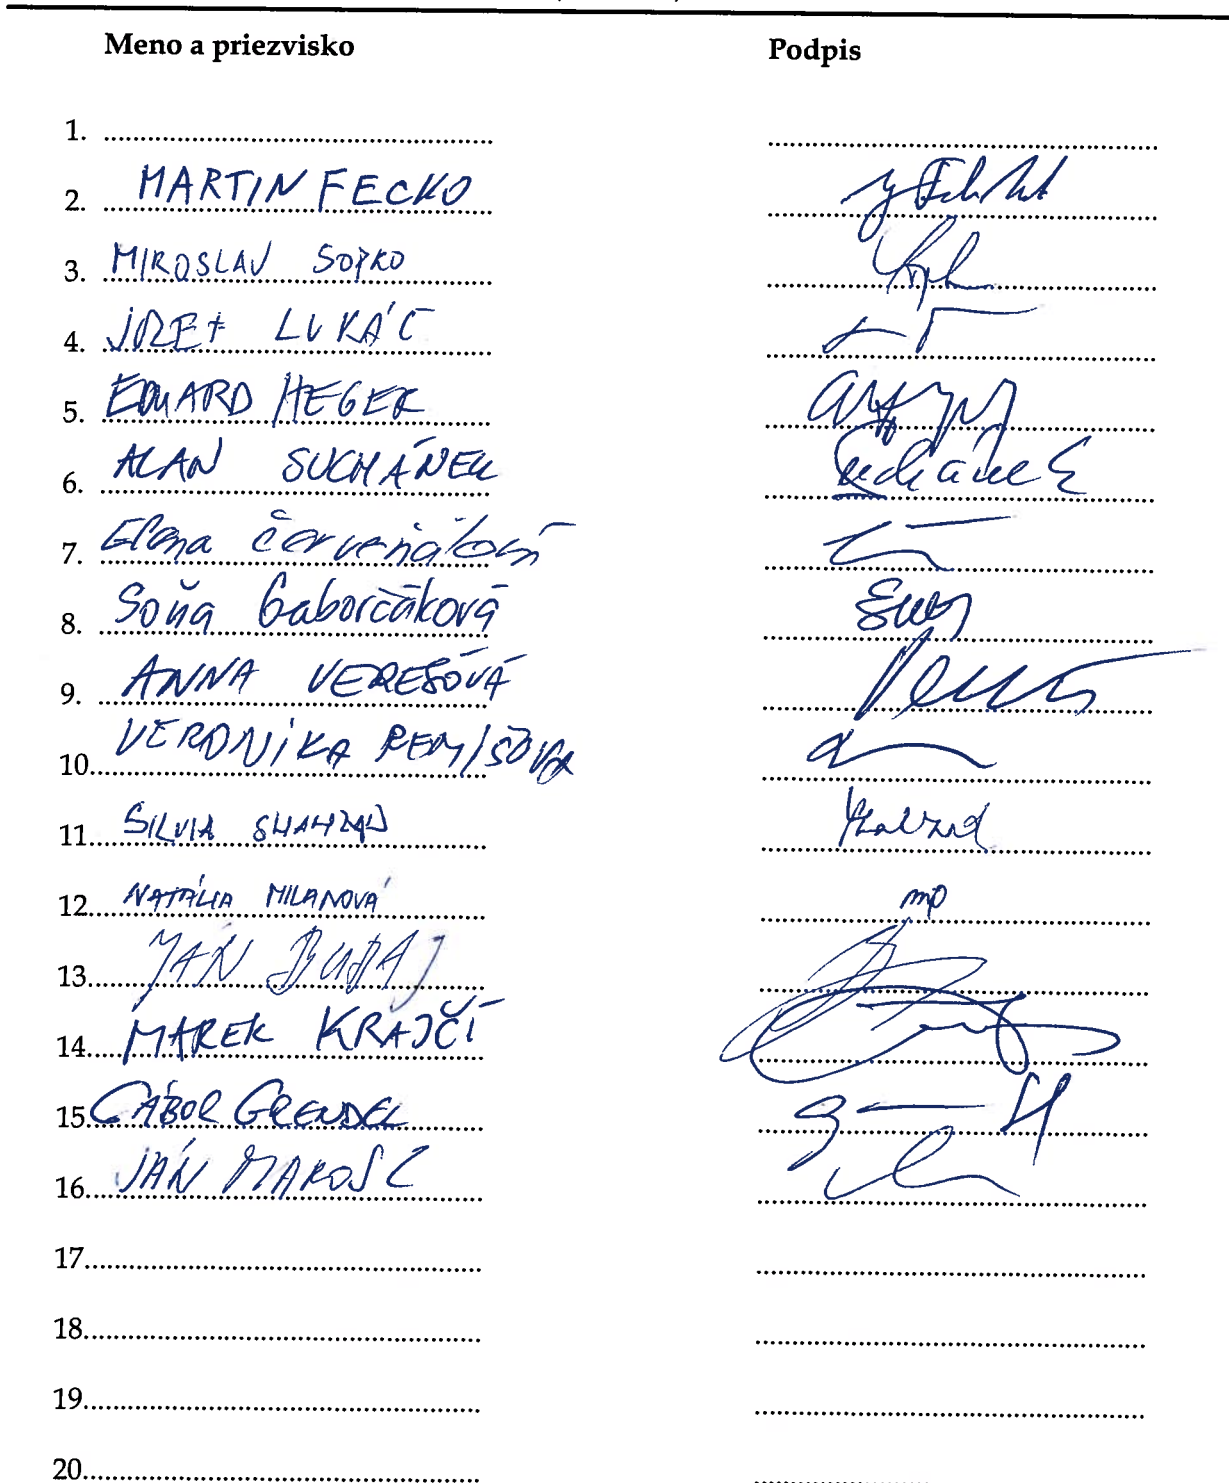 Meno a priezvisko Podpis
1.
2. MARTIN FECKO
3. MIROSLAV SOPKO
4. JOZEF LUKÁČ
5. EDUARD HEGER
6. ALAN SUCHÁNEK Suchánek
7. Elena Červeňáková
8. Soňa Gaborčáková
9. ANNA VEREŠOVÁ
10. VERONIKA REMIŠOVÁ
11. SILVIA SHAHZAD Shahzad
12. NATÁLIA MILANOVÁ mp
13. JÁN BUDAJ
14. MAREK KRAJČÍ
15. GÁBOR GRENDEL
16. JÁN MAROSZ
17.
18.
19.
20.